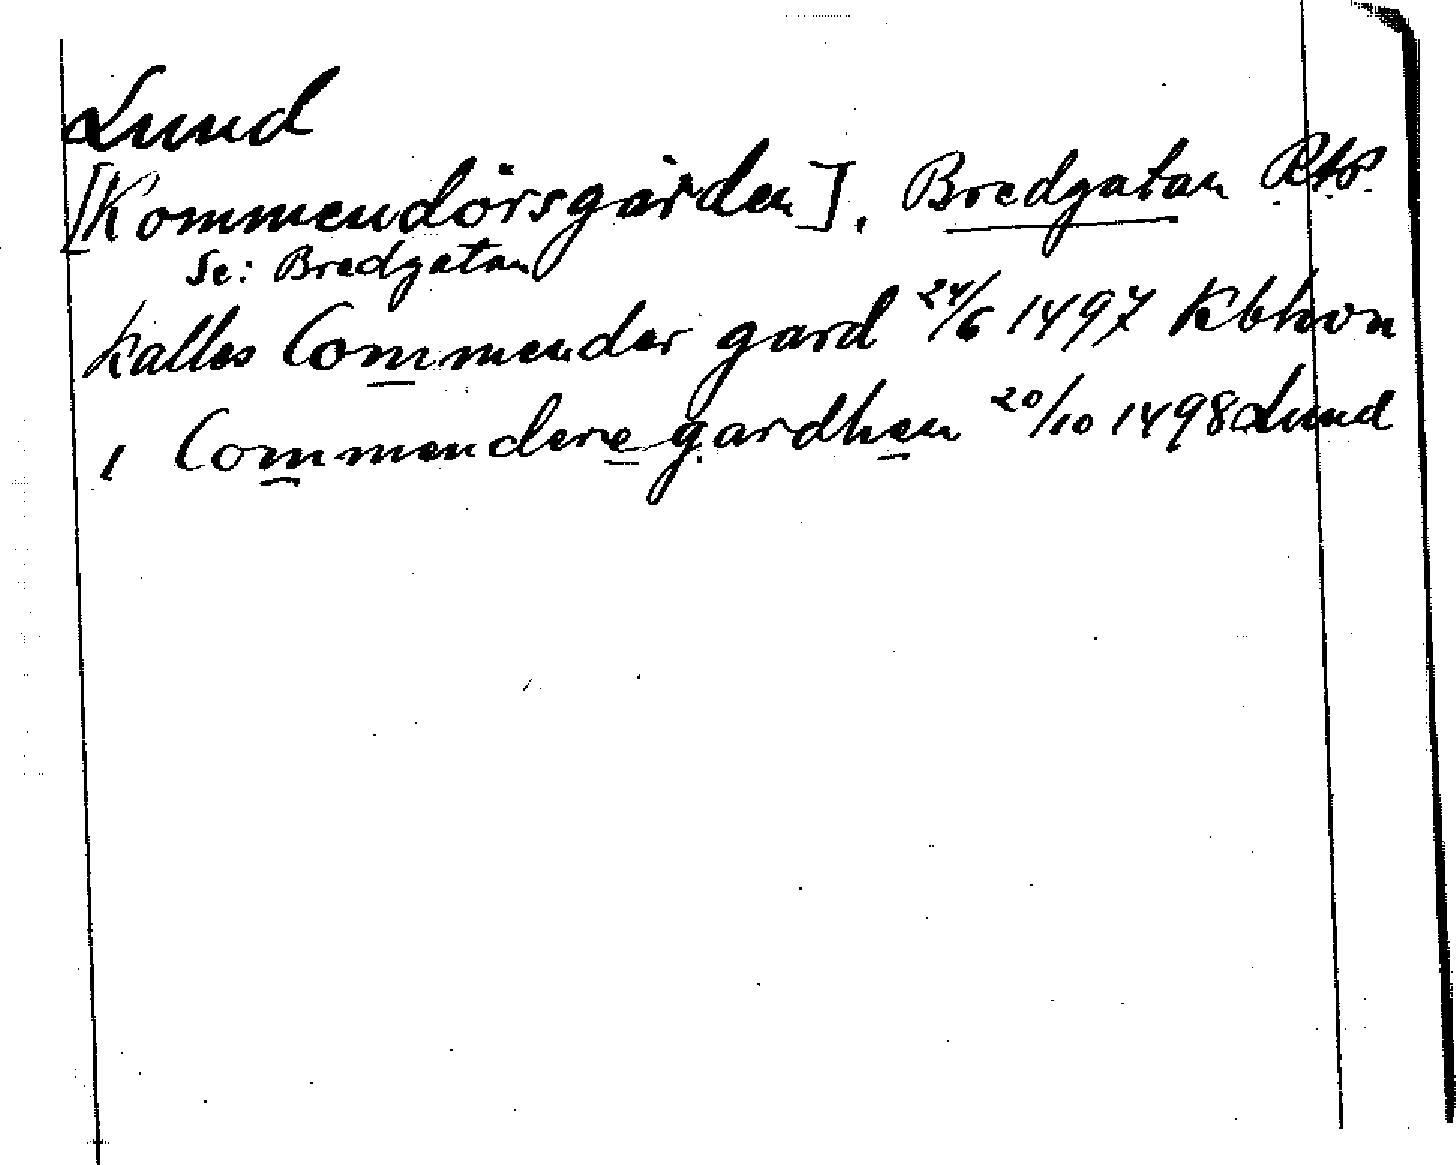 Lund
[Kommendörsgården], Bredgatan
Se: Bredgatan
kallas Commender gard 24/6 1497 Kbhvn
1 Commendere gardhen 20/10 1498 Lund